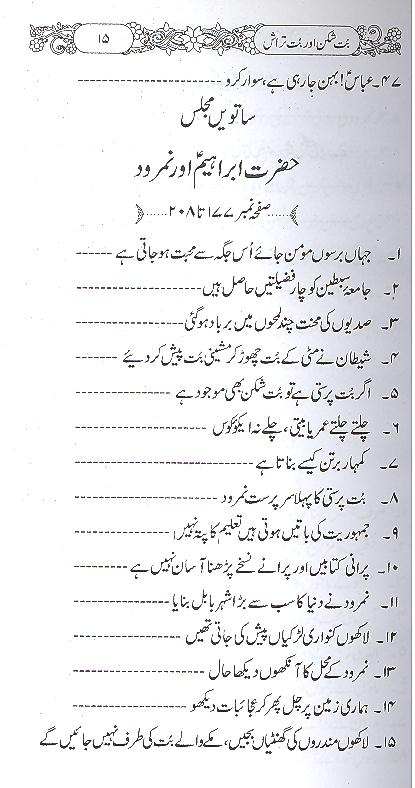 بُت شکن اور بُت تراش
۱۵
۴۷۔ عباسؑ! بہن جارہی ہے، سوار کرو
ساتویں مجلس
حضرت ابراہیمؑ اور نمرود
صفحہ نمبر ۱۷۷ تا ۲۰۸
۱۔ جہاں برسوں مومن جائے اُس جگہ سے محبت ہو جاتی ہے
۲۔ جامعۂ سبطین کو چار فضیلتیں حاصل ہیں
۳۔ صدیوں کی محنت چند لمحوں میں برباد ہوگئی
۴۔ شیطان نے مٹی کے بُت چھوڑ کر مشینی بُت پیش کردیئے
۵۔ اگر بُت پرستی ہے تو بُت شکن بھی موجود ہے
۶۔ چلتے چلتے عمر یا بیتی، چلے نہ ایکو کوس
۷۔ کمہار برتن کیسے بناتا ہے
۸۔ بُت پرستی کا پہلا سرپرست نمرود
۹۔ جمہوریت کی باتیں ہوتی ہیں تعلیم کا پتہ نہیں!
۱۰۔ پرانی کتابیں اور پرانے نسخے پڑھنا آسان نہیں ہے
۱۱۔ نمرود نے دنیا کا سب سے بڑا شہر بابل بنایا
۱۲۔ لاکھوں کنواری لڑکیاں پیش کی جاتی تھیں
۱۳۔ نمرود کے محل کا آنکھوں دیکھا حال
۱۴۔ ہماری زمین پر چل پھر کر عجائبات دیکھو
۱۵۔ لاکھوں مندروں کی گھنٹیاں بجیں، مکے والے بُت کی طرف نہیں جائیں گے